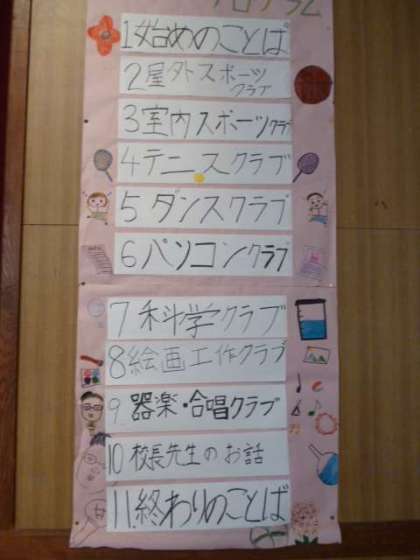 プログラム
1始めのことば
2屋外スポーツ
クラブ
3室内スポーツクラブ
4テニスクラブ
5ダンスクラブ
6パソコンクラブ
7科学クラブ
8絵画工作クラブ
9.器楽・合唱クラブ
10校長先生のお話
11.終わりのことば